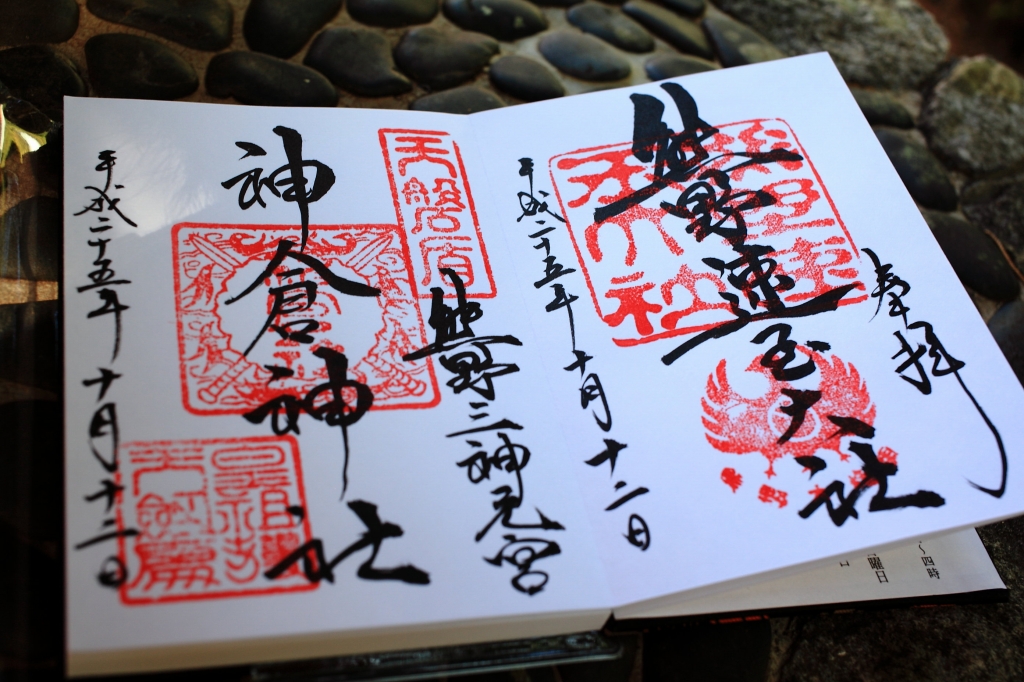 奉拝
熊野速玉大社
熊野速
玉大社
平成二十五年十月十二日
天磐盾
熊野三神元宮
神倉神社
平成二十五年十月十二日
～四時
曜日